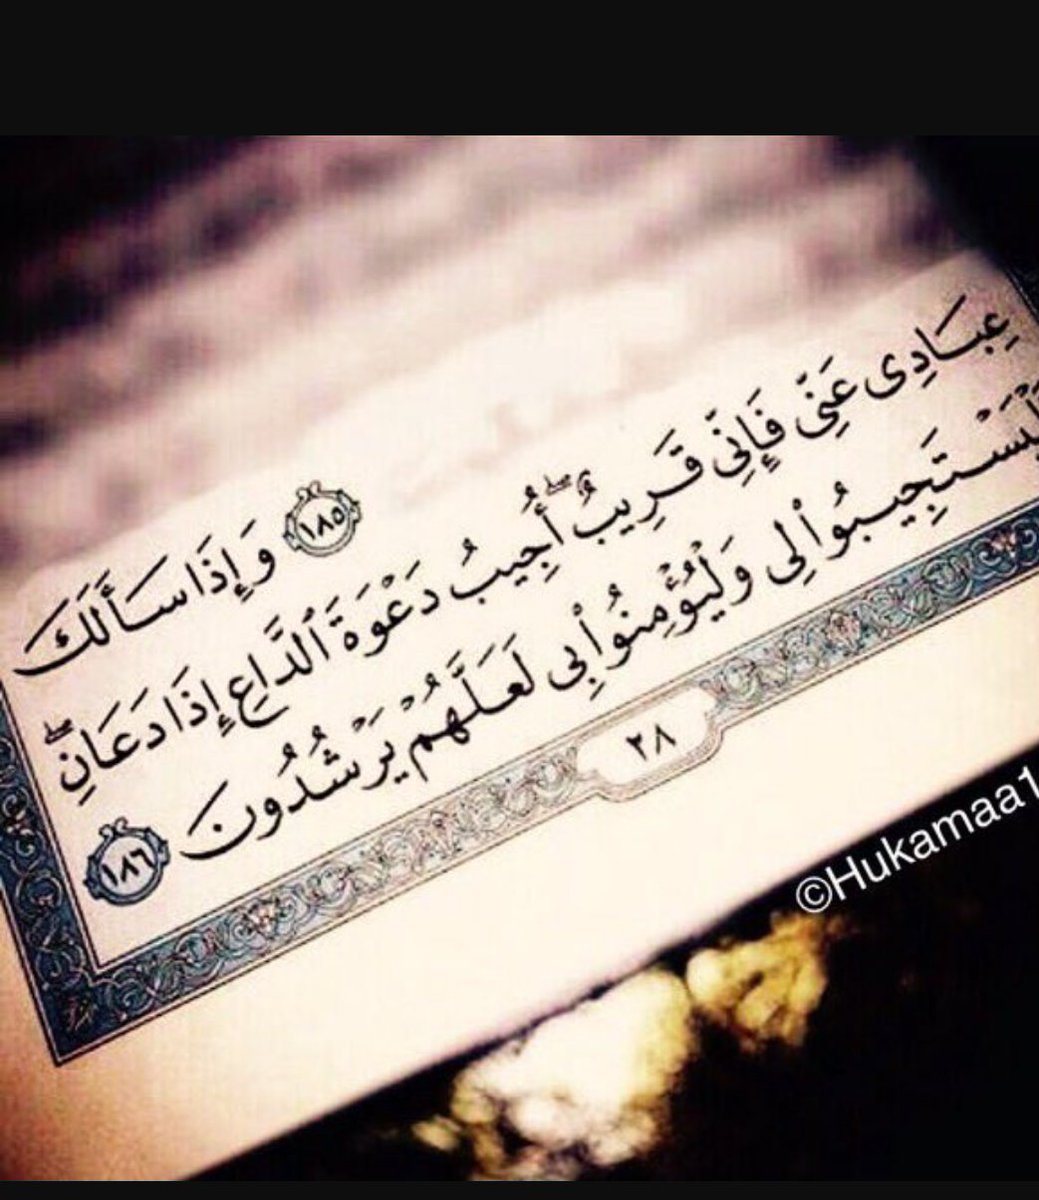 ١٨٥ وَإِذَا سَأَلَكَ
عِبَادِى عَنِّى فَإِنِّى قَرِيبٌ ۖ أُجِيبُ دَعْوَةَ ٱلدَّاعِ إِذَا دَعَانِ ۖ
لْيَسْتَجِيبُوا۟ لِى وَلْيُؤْمِنُوا۟ بِى لَعَلَّهُمْ يَرْشُدُونَ ١٨٦
٢٨
©Hukamaa1